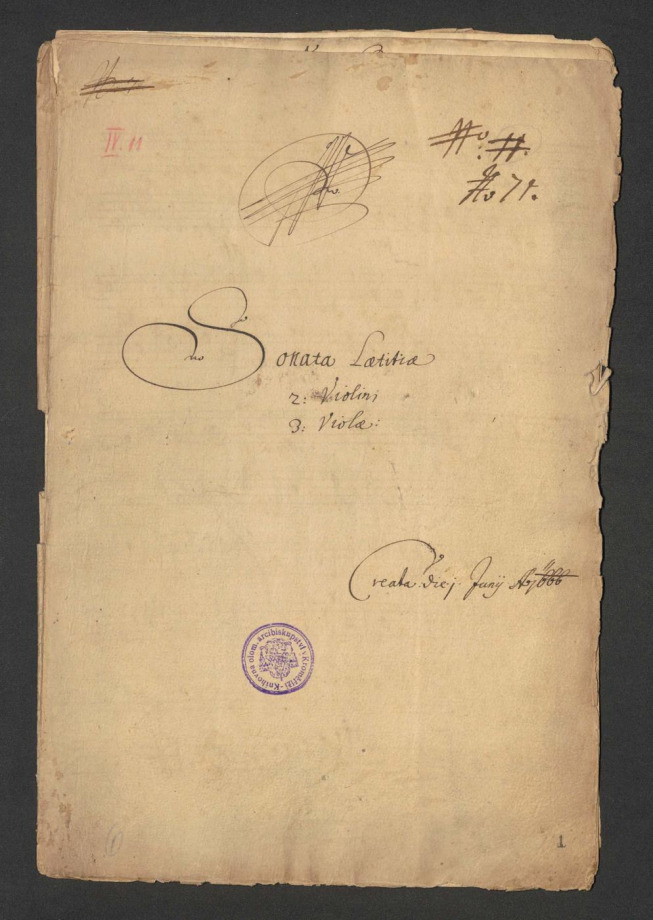 IV. 11
No
No 71.
Sonata Lætitiæ
2: Violini
3: Violæ:
Creata die j. Junij Ao 1666
Knihovna olom. arcibiskupství v Kroměříži
1